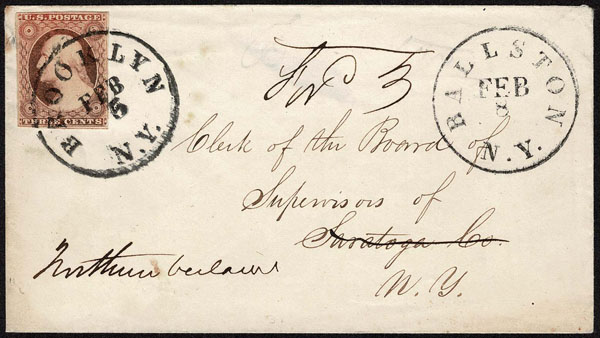 U.S. POSTAGE
THREE CENTS
BROOKLYN
FEB
5
N.Y.
BALLSTON
FEB
8
N.Y.
Ford 3
Clerk of the Board of
Supervisors of
Saratoga Co.
N. Y.
Northumberland